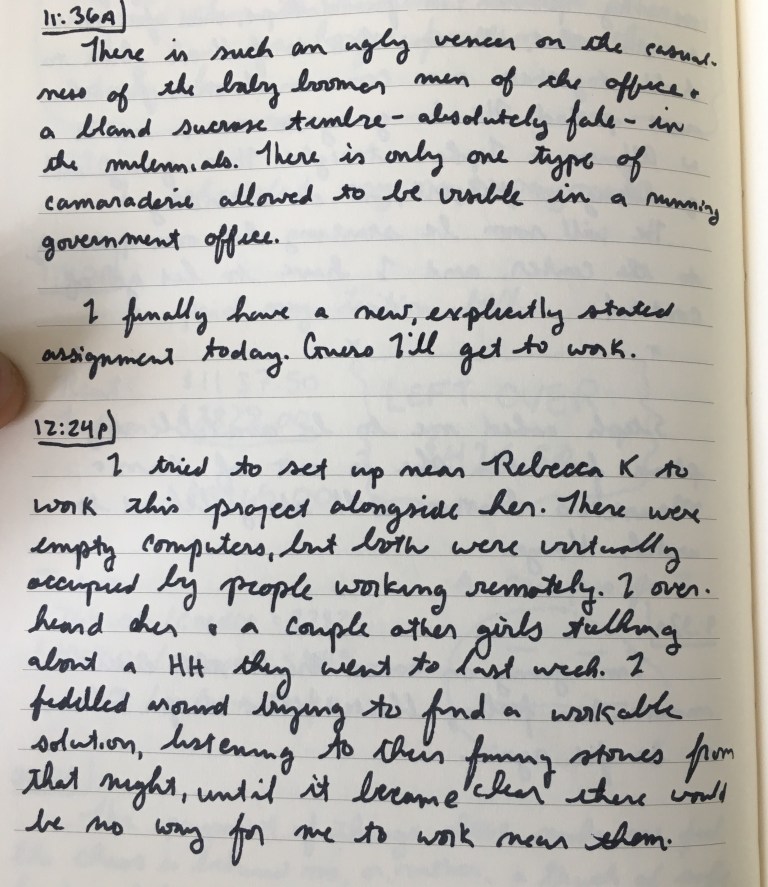 11:36A
There is such an ugly veneer on the casual-
ness of the baby boomer men of the office &
a bland sucrose timbre - absolutely fake - in
the milennials. There is only one type of
camaraderie allowed to be visible in a running
government office.
I finally have a new, explicitly stated
assignment today. Guess I'll get to work.
12:24P
I tried to set up near Rebecca K to
work this project alongside her. There were
empty computers, but both were virtually
occupied by people working remotely. I over-
heard her & a couple other girls talking
about a HH they went to last week. I
fiddled around trying to find a workable
solution, listening to their funny stories from
that night, until it became clear there would
be no way for me to work near them.